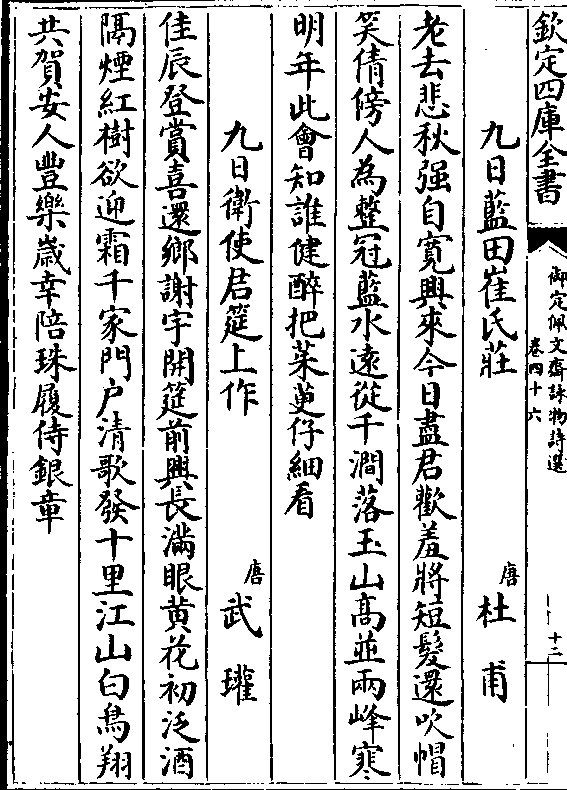 欽定四庫全書
御定佩文齋詠物詩選
卷四十六
十二
九日藍田崔氏莊
唐
杜甫
老去悲秋强自寛興來今日盡君歡羞將短髮還吹帽
笑倩傍人為整冠藍水遠從千澗落玉山高並兩峰寒
明年此會知誰健醉把茱萸仔細看
九日衛使君筵上作
唐
武瓘
佳辰登賞喜還鄉謝宇開筵前興長滿眼黄花初泛酒
隔煙紅樹欲迎霜千家門户清歌發十里江山白鳥翔
共賀安人豐樂嵗幸陪珠履侍銀章